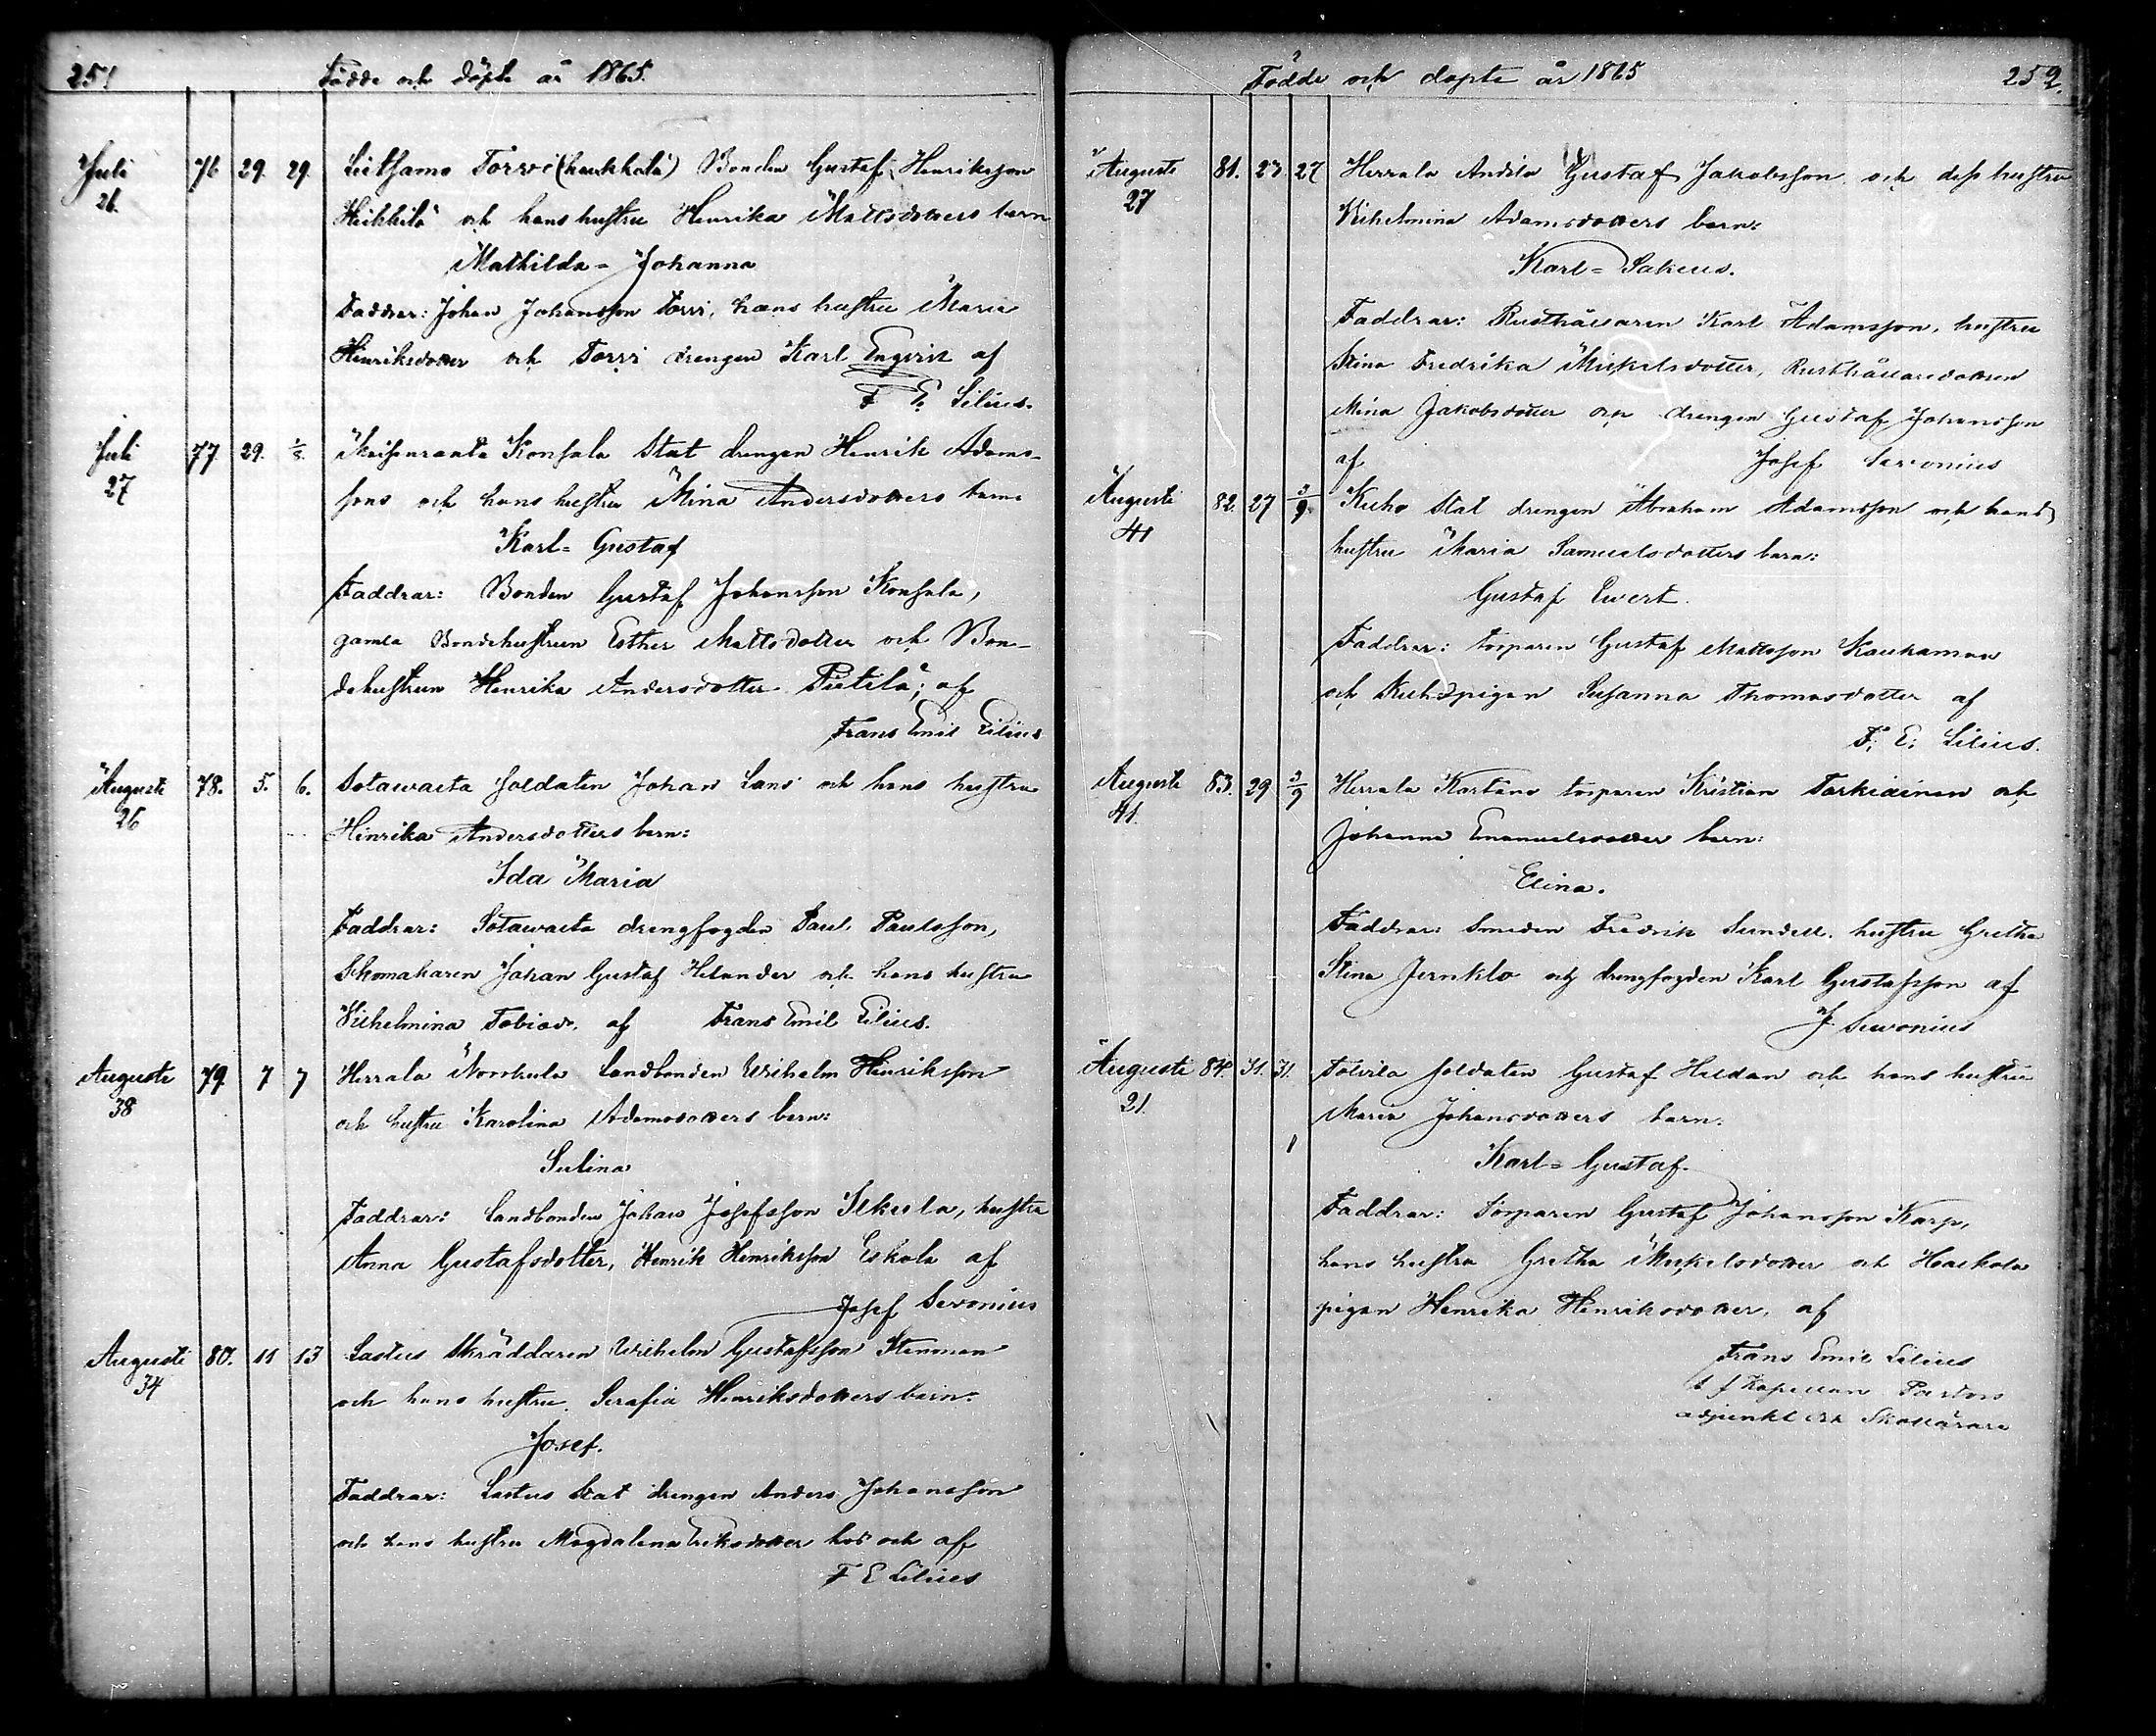 251 Födde och döpte år 1865.
Juli 76 29. 29. Torvi Bonden Gustaf Henriksson
26. Heikkilä och hans hustru Henrika Mattsdotters barn
Mathilda - Johanna
Faddrar: Johan Johansson Torvi, hans hustru Maria
Henriksdotter och Torvi drengen Karl Engvist af
F E Lilius.
Juli 77 29. 1/8. Konsala Stat drengen Henrik Adams-
27 sons och hans hustru Mina Andersdotters barn
Karl = Gustaf
Faddrar: Bonden Gustaf Johansson Konsala,
gamla Bondehustrun Esther Mattsdotter och Bon-
dehustrun Henrika Andersdotter Pietilä; af
Frans Emil Lilius
Augusti 78. 5. 6. Sotawalta soldaten Johan Lans och hans hustru
26 Hinrika Andersdotters barn:
Ida Maria
Faddrar: Sotawalta drengfogden Paul Paulsson,
Skomakaren Johan Gustaf Helander och hans hustru
Vilhelmina Tobiasd. af Frans Emil Lilius.
Augusti 79. 7 7 Herrala Landbonden Wilhelm Henriksson
38 och hustru Karolina Adamsdotters barn:
Sulina
Faddrar: Landbonden Johan Josefsson Ilkula, hustru
Anna Gustafsdotter, Henrik Henriksson Eskola af
Josef Servonius
Augusti 80. 11 13 Lastus Skräddaren Wilhelm Gustafsson Stenman
34 och hans hustru Serafia Henriksdotters barn:
Josef.
Faddrar: Lastus Stat drengen Anders Johansson
och hans hustru Magdalena Eriksdotter och af
F E Lilius
Födde och döpte år 1865 252.
Augusti 81. 23 27 Herrala Andila Gustaf Jakobsson och dess hustru
27 Vilhelmina Adamsdotters barn:
Karl = Sakeus.
Faddrar: Rusthållaren Karl Adamsson, hustru
Stina Fredrika Mickelsdotter, Rusthållaredottren
Mina Jakobsdotter och drengen Gustaf Johansson
af Josef Servonius
Augusti 82. 27 3/9. Kuho Stat drengen Abraham Adamsson och hans
41 hustru Maria Samuelsdotters barn:
Gustaf Ewert.
Faddrar: torparen Gustaf Mattsson Kauhanen
och Kuho pigan Susanna Thomasdotter af
F. E. Lilius.
Augusti 83. 29 3/9 Herrala Kartano torparen Kristian Tarkiainen och
41. Johanna Emanuelsdotter barn:
Elina.
Faddrar: Smeden Fredrik Sundell. hustru Gretha
Stina Jernklo och drengfogden Karl Gustafsson af
J. Servonius
Augusti 84. 31. 31. Tolvila soldaten Gustaf Huldan och hans hustru
21. Maria Johansdotters barn:
Karl = Gustaf.
Faddrar: Torparen Gustaf Johansson Karp,
hans hustru Gretha Mickelsdotter och Haekola
pigan Henrika Henriksdotter, af
Frans Emil Lilius
t f Kapellan Pastors
adjunkt och Skollärare